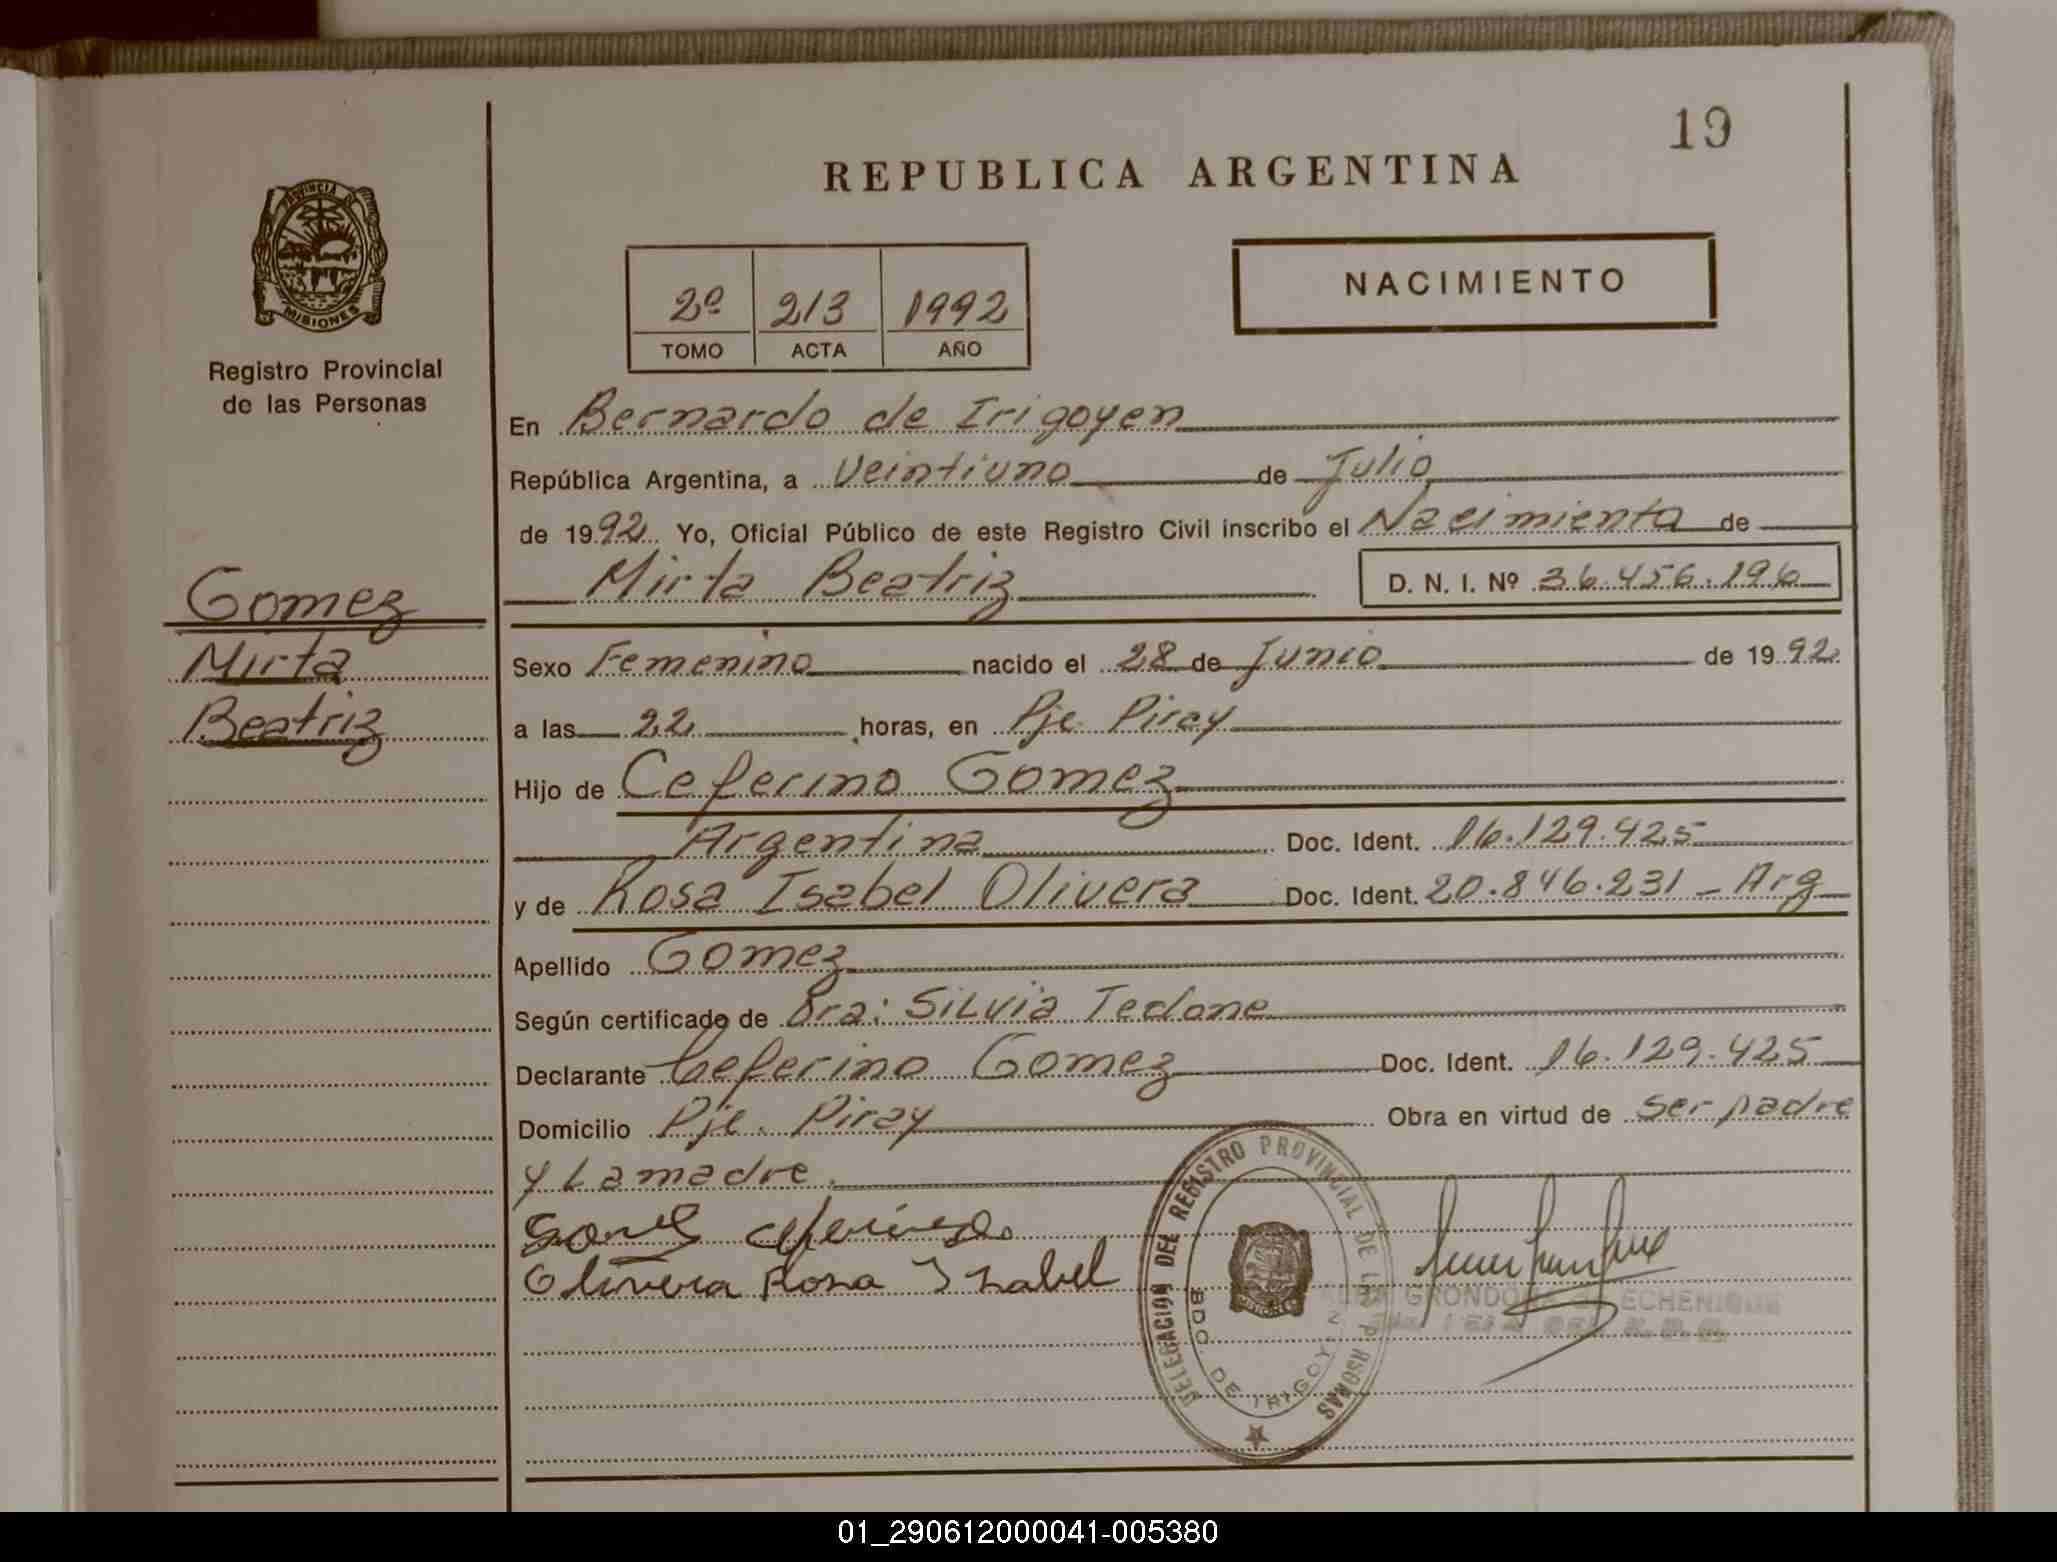 19
REPUBLICA ARGENTINA
PROVINCIA DE
MISIONES
Registro Provincial
de las Personas
2º 213 1992
TOMO ACTA AÑO
NACIMIENTO
En Bernardo de Irigoyen
República Argentina, a Veintiuno de Julio
de 1992 Yo, Oficial Público de este Registro Civil inscribo el Nacimiento de
Mirta Beatriz D. N. I. Nº 36.456.196
Gomez
Mirta
Beatriz
Sexo Femenino nacido el 28 de Junio de 1992
a las 22 horas, en Pje Piray
Hijo de Ceferino Gomez
Argentina Doc. Ident. 16.129.425
y de Rosa Isabel Olivera Doc. Ident. 20.846.231 - Arg
Apellido Gomez
Según certificado de Dra: Silvia Tedone
Declarante Ceferino Gomez Doc. Ident. 16.129.425
Domicilio Pje. Piray Obra en virtud de ser padre
y La madre.
Gomez Ceferino
Olivera Rosa Isabel
DELEGACION DEL REGISTRO PROVINCIAL DE LAS PERSONAS
BDO. DE IRIGOYEN
GRONDONA DE ECHENIQUE
01_290612000041-005380